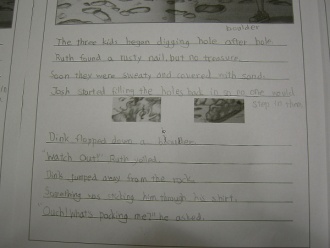 boulder
The three kids began digging hole after hole.
Ruth found a rusty nail, but no treasure.
Soon they were sweaty and covered with sand.
Josh started filling the holes back in so no one would
step in them
Dink flopped down a boulder.
"Watch Out!" Ruth yelled.
Dink jumped away from the rock.
Something was itching him though his shirt.
"Ouch! what's pocking me?" he asked.